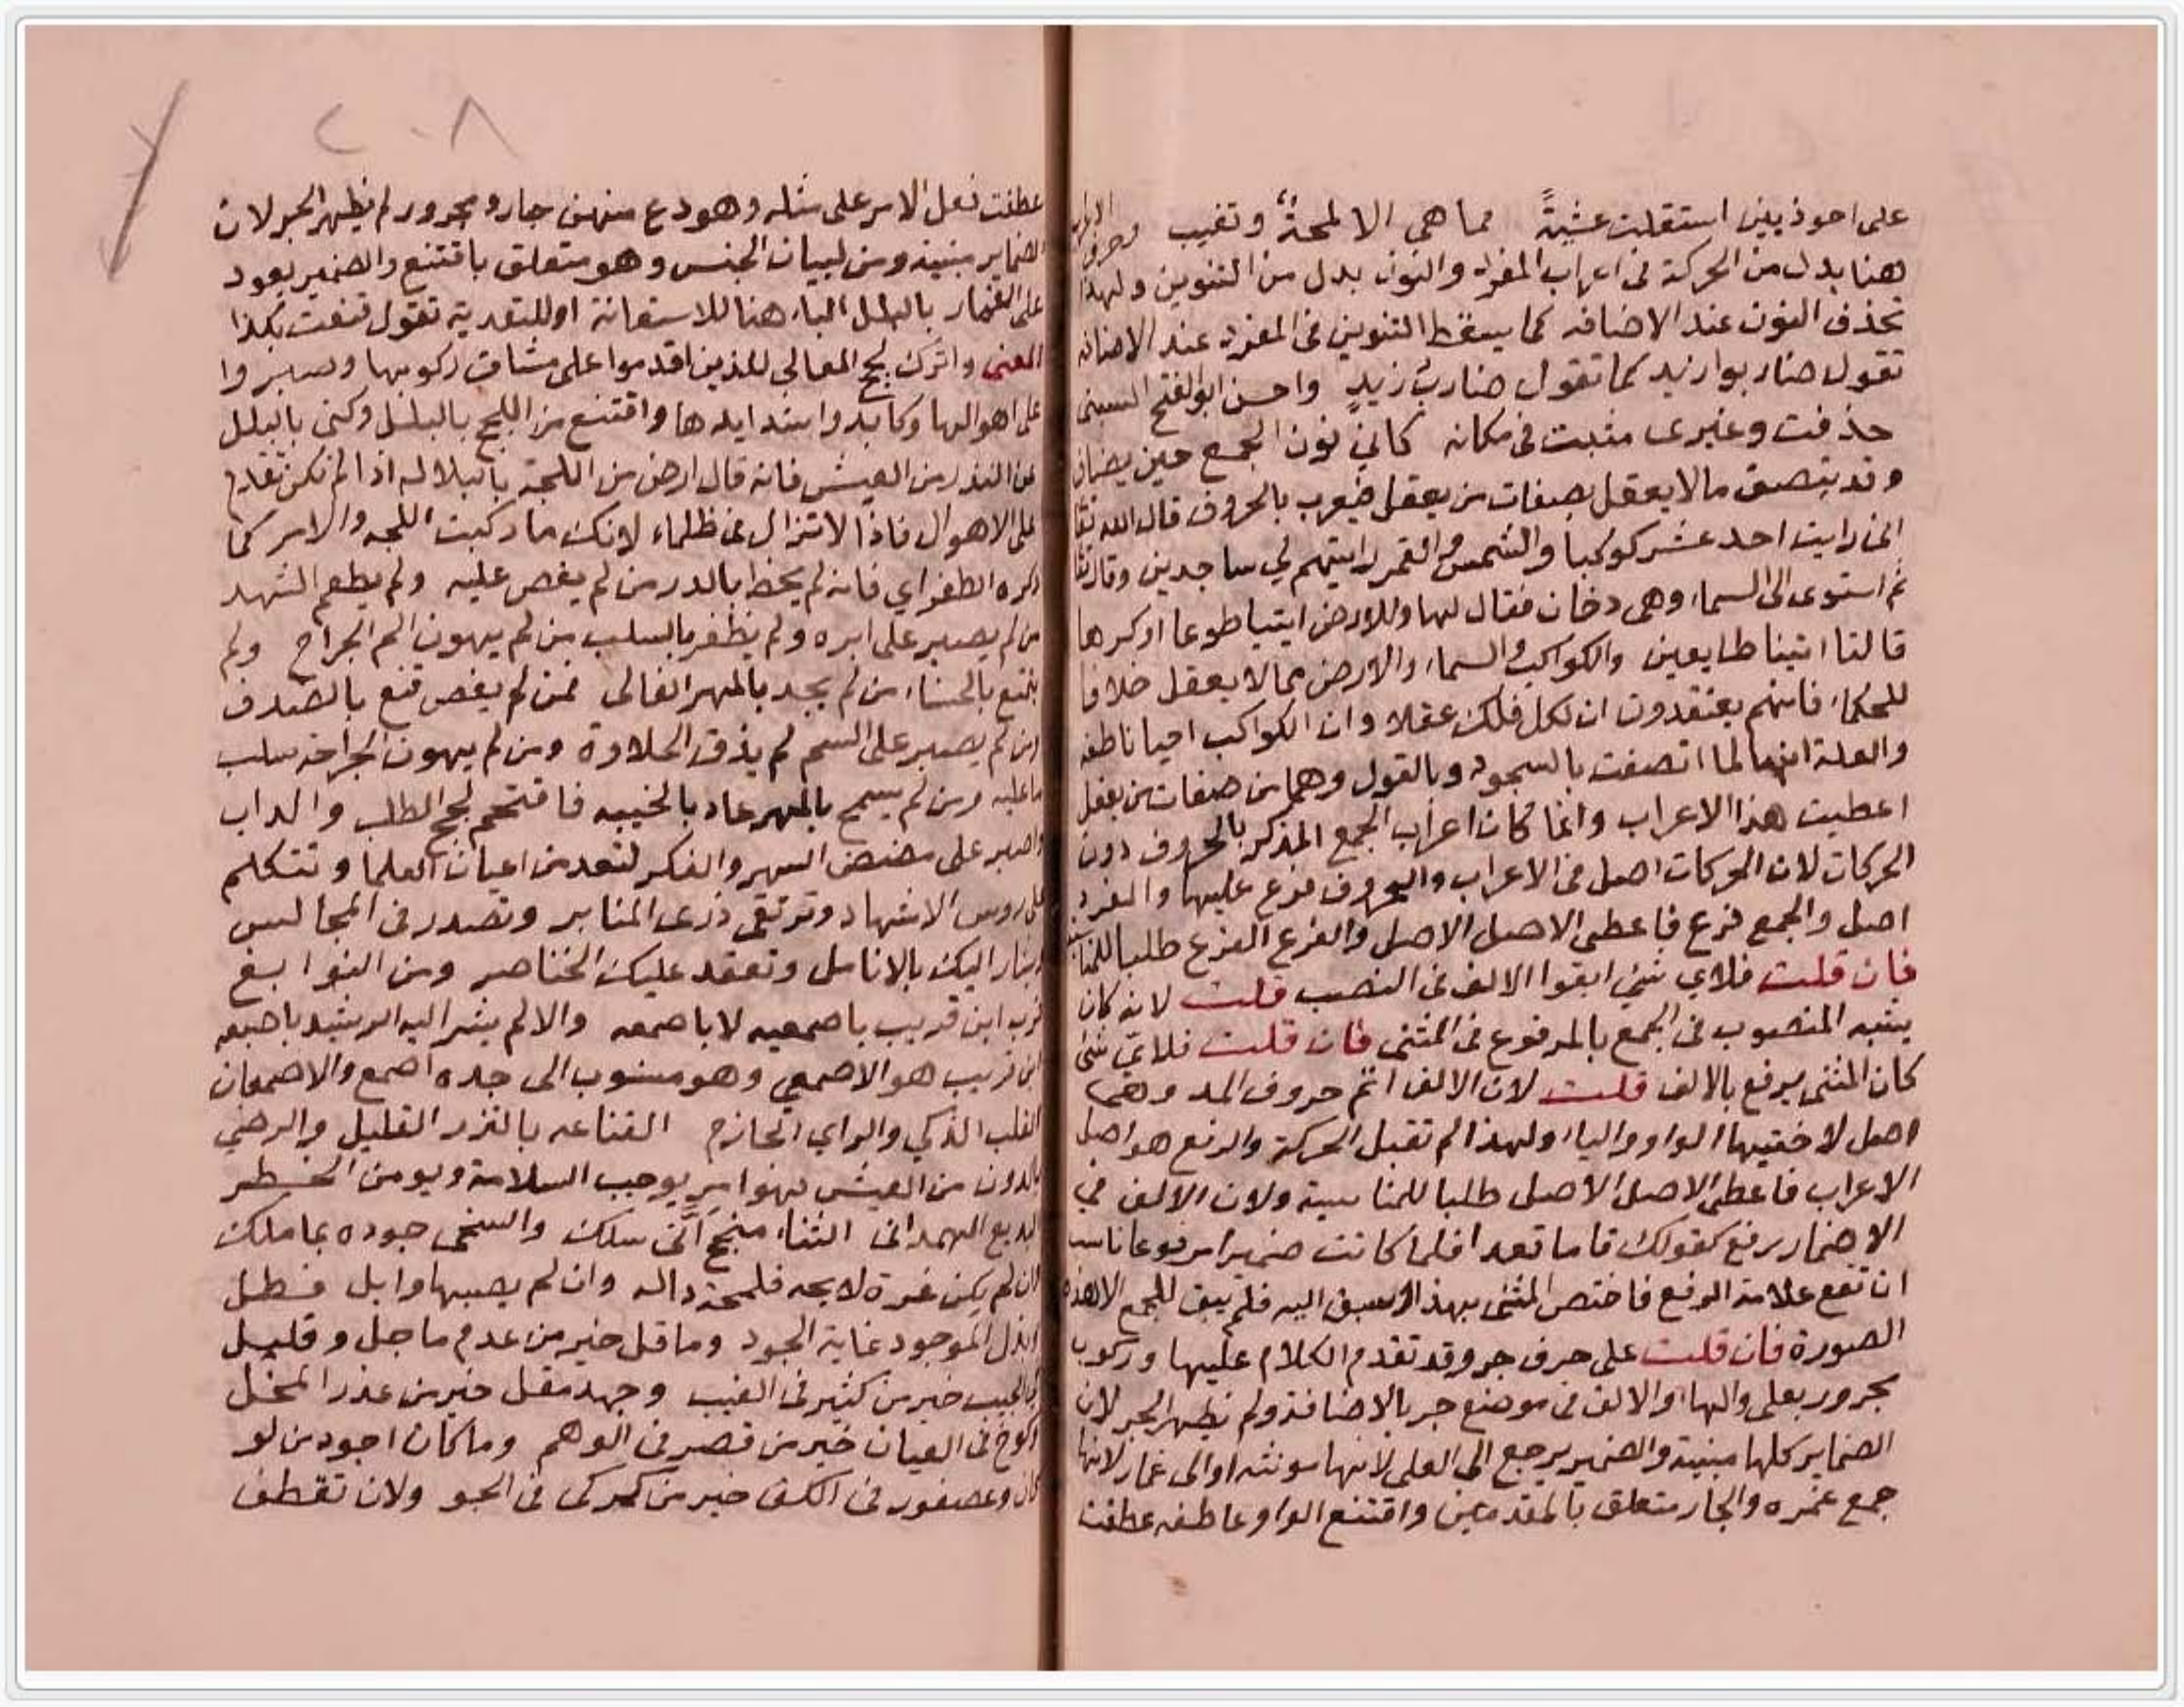 على احوذيين استقلت عشية فما هي الا لمحة وتغيب وحرف
هنا بدل من الحركة في اعراب المفرد والنون بدل من التنوين ولهذا
تحذف النون عند الاضافه كما يسقط التنوين في المفرد عند الاضافه
تقول ضاربوا زيد كما تقول ضارب زيدٍ واحسن ابو الفتح البستى
حذفت وغيرى مثبت في مكانه كاني نون الجمع حين يضاف
وقد يتصف ما لا يعقل بصفات من يعقل فيعرب بالحروف قال الله تعا
اني رايت احد عشر كوكبا والشمس والقمر رايتهم لي ساجدين وقال تعا
ثم استوى الى السماء وهى دخان فقال لها وللارض ايتيا طوعا او كرها
قالتا اتينا طايعين والكواكب والسماء والارض مما لا يعقل خلافا
للحكماء فانهم يعتقدون ان لكل فلك عقلا وان الكواكب احيا ناطقه
والعلة انها لما اتصفت بالسجود وبالقول وهما من صفات من يعقل
اعطيت هذا الاعراب وانما كان اعراب الجمع المذكر بالحروف دون
الحركات لان الحركات اصل في الاعراب والحروف فرع عليها والمفرد
اصل والجمع فرع فاعطى الاصل الاصل والفرع الفرع طلبا للمناسبة
فان قلت فلاي شي ابقوا الالف في النصب قلت لانه كان
يشبه المنصوب في الجمع بالمرفوع في المثنى فان قلت فلاي شي
كان المثنى يرفع بالالف قلت لان الالف اتم حروف المد وهى
اصل لاختيها الواو والياء ولهذا لم تقبل الحركة والرفع هو اصل
الاعراب فاعطى الاصل الاصل طلبا للمناسبة ولان الالف في
الاضمار رفع كقولك قاما قعدا فلما كانت ضميرا مرفوعا ناسب
ان تقع علامة الرفع فاختص المثنى بهذا لسبق اليه فلم يبق للجمع الا هذه
الصورة فان قلت على حرف جر وقد تقدم الكلام عليها وركوب
مجرور بعلى والهاء والالف في موضع جر بالاضافة ولم يظهر الجر لان
الضماير كلها مبنية والضمير يرجع الى العلى لانها مونثه او الى غمار لانها
جمع غمره والجار متعلق بالمقدمين واقتنع الواو عاطفه عطفت
عطفت فعل الامر على مثله وهو دع منهن جار ومجرور لم يظهر الجر لان
الضماير مبنية ومن لبيان الجنس وهو متعلق باقتنع والضمير يعود
على الغمار بالبلل الباء هنا للاستعانة او للتعدية تقول قنعت بكذا
المعنى واترك لجج المعالي للذين اقدموا على مشاق ركوبها وصبروا
على اهوالها وكابدوا شدايدها واقتنع من اللجج بالبلل وكنى بالبلل
عن النذر من العيش فانه قال ارض من اللجة بالبلاله اذا لم تكن تقدم
على الاهوال فاذا لا تزال في ظلماء لانك ما ركبت اللجه والامر كما
ذكره الطغراي فانه لم يحظ بالدر من لم يغص عليه ولم يطعم الشهد
من لم يصبر على ابره ولم يظفر بالسلب من لم يهون الم الجراح ولم
يتمتع بالحسناء من لم يجد بالمهر الغالى فمن لم يغص قنع بالصدف
ومن لم يصبر على السم لم يذق الحلاوة ومن لم يهون الجراحة سلب
ماعليه ومن لم يسمح بالمهر عاد بالخيبه فاقتحم لجج الطلب والداب
واصبر على مضض السهر والفكر لتعد من اعيان العلما وتتكلم
على روس الاشهاد وترتقى ذرى المنابر وتصدر في المجالس
ويشار اليك بالانامل وتعقد عليك الخناصر ومن النوابغ
قرب ابن قريب باصمعيه لا باصمعه والا لم يشر اليه الرشيد باصبعه
ابن قريب هو الاصمعي وهو منسوب الى جده اصمع والاصمعان
القلب الذكي والراي الحازم القناعه بالنزر القليل والرضي
بالدون من العيش فهو امر يوجب السلامة ويومن الخطر
البديع الهمدانى الثناء منجح انى سلك والسخى جوده بما ملك
ان لم يكن غرة لايحه فلمحة داله وان لم يصبها وابل فطل
ابذل الموجود غاية الجود وما قل خير من عدم ما جل وقليل
في الجيب خير من كثير في الغيب وجهد مقل خير من عذر المخل
الكوخ في العيان خير من قصر في الوهم وما كان اجود من لو
كان وعصفور في الكف خير من كركى في الجو ولان تقطف